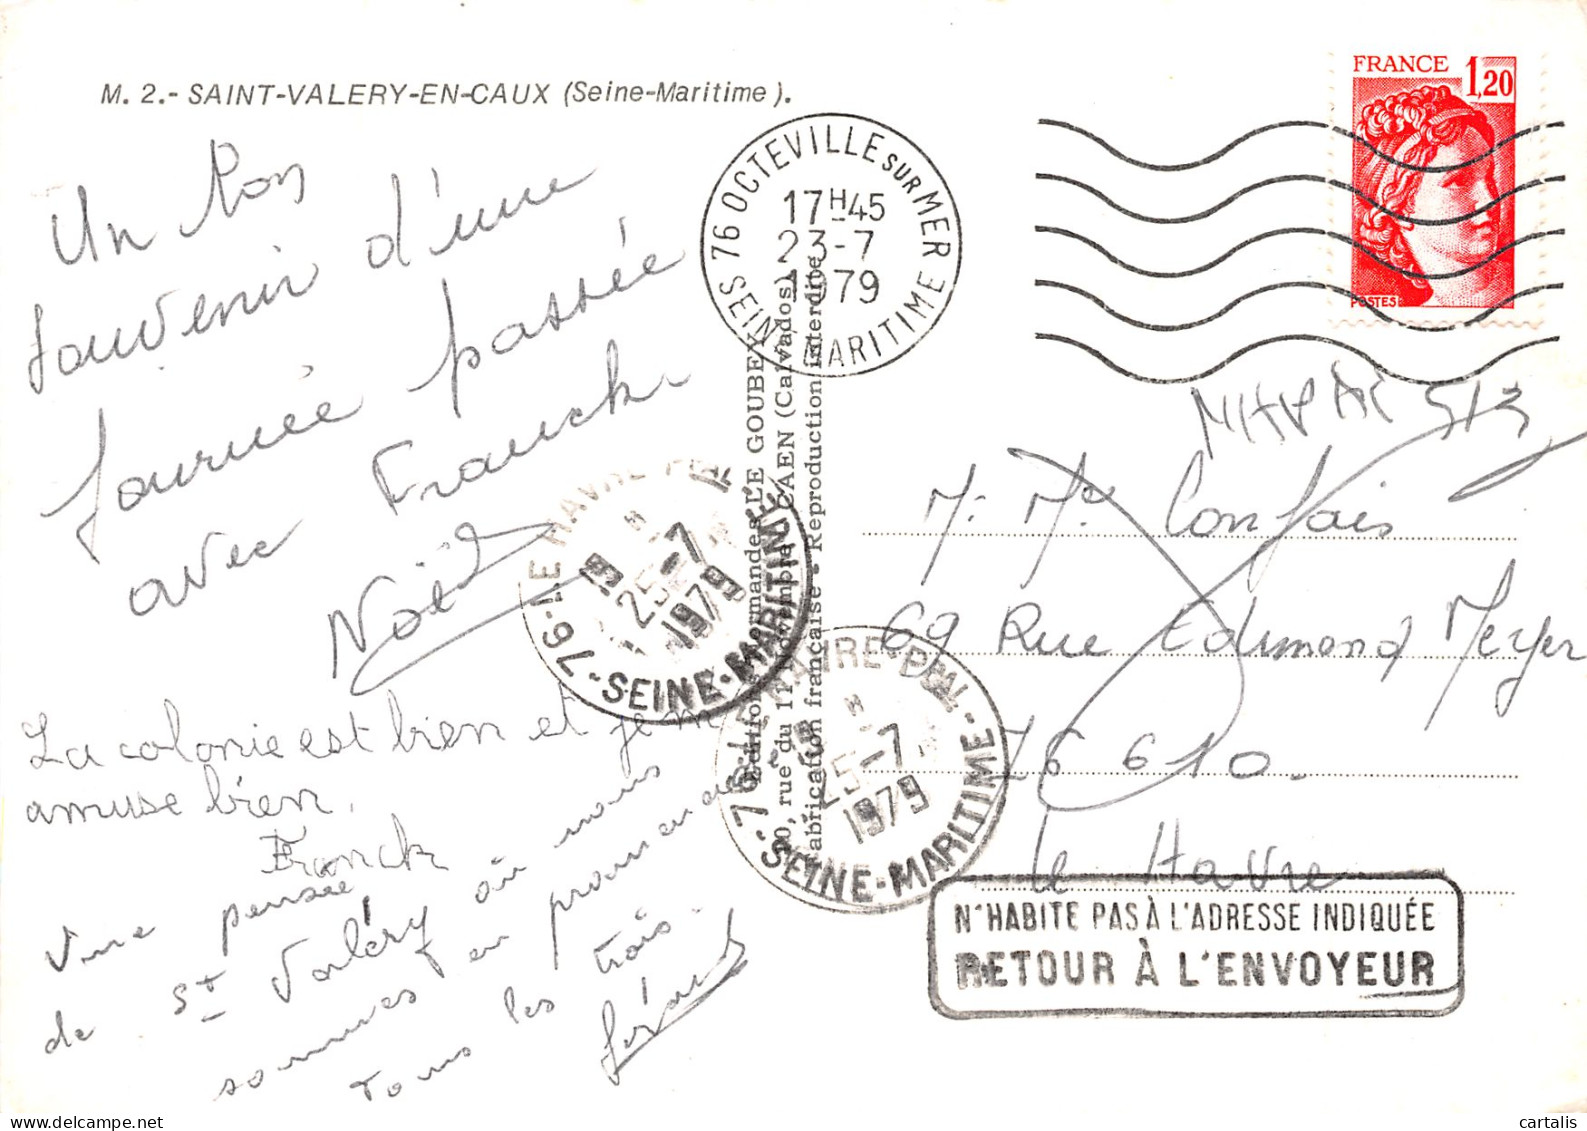 M. 2.- SAINT-VALERY-EN-CAUX (Seine-Maritime).
FRANCE 1,20
POSTES
76 OCTEVILLE SUR MER
17H45
23-7
1979
SEINE MARITIME
Un Bon
souvenir d'une
journée passée
avec Franck
Noël
La colonie est bien et je m'
amuse bien.
Franck
Une pensée
de St Valéry où nous
sommes en promenade
tous les trois.
Gérard
Editions Normandes LE GOUBEY
, rue du 11 Novembre CAEN (Calvados)
Fabrication française - Reproduction interdite
LE HAVRE PPAL
19H
25-7
1979
76 - SEINE-MARITIME
LE HAVRE PPAL
25-7
1979
76 - SEINE-MARITIME -
M. Me Confais
69 Rue Edumond Meyer
76610.
Le Havre
N'HABITE PAS À L'ADRESSE INDIQUÉE
RETOUR À L'ENVOYEUR
cartalis